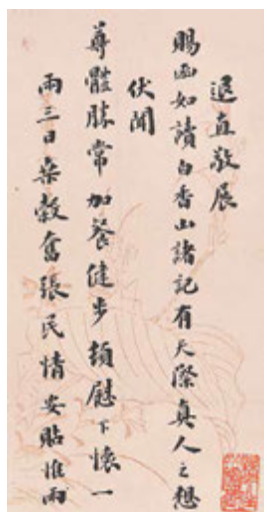 退直敬展
賜函如讀白香山諸記有天際真人之想
伏聞
尊體勝常加餐健步頗慰下懷一
雨三日桒穀奮張民情安貼惟雨